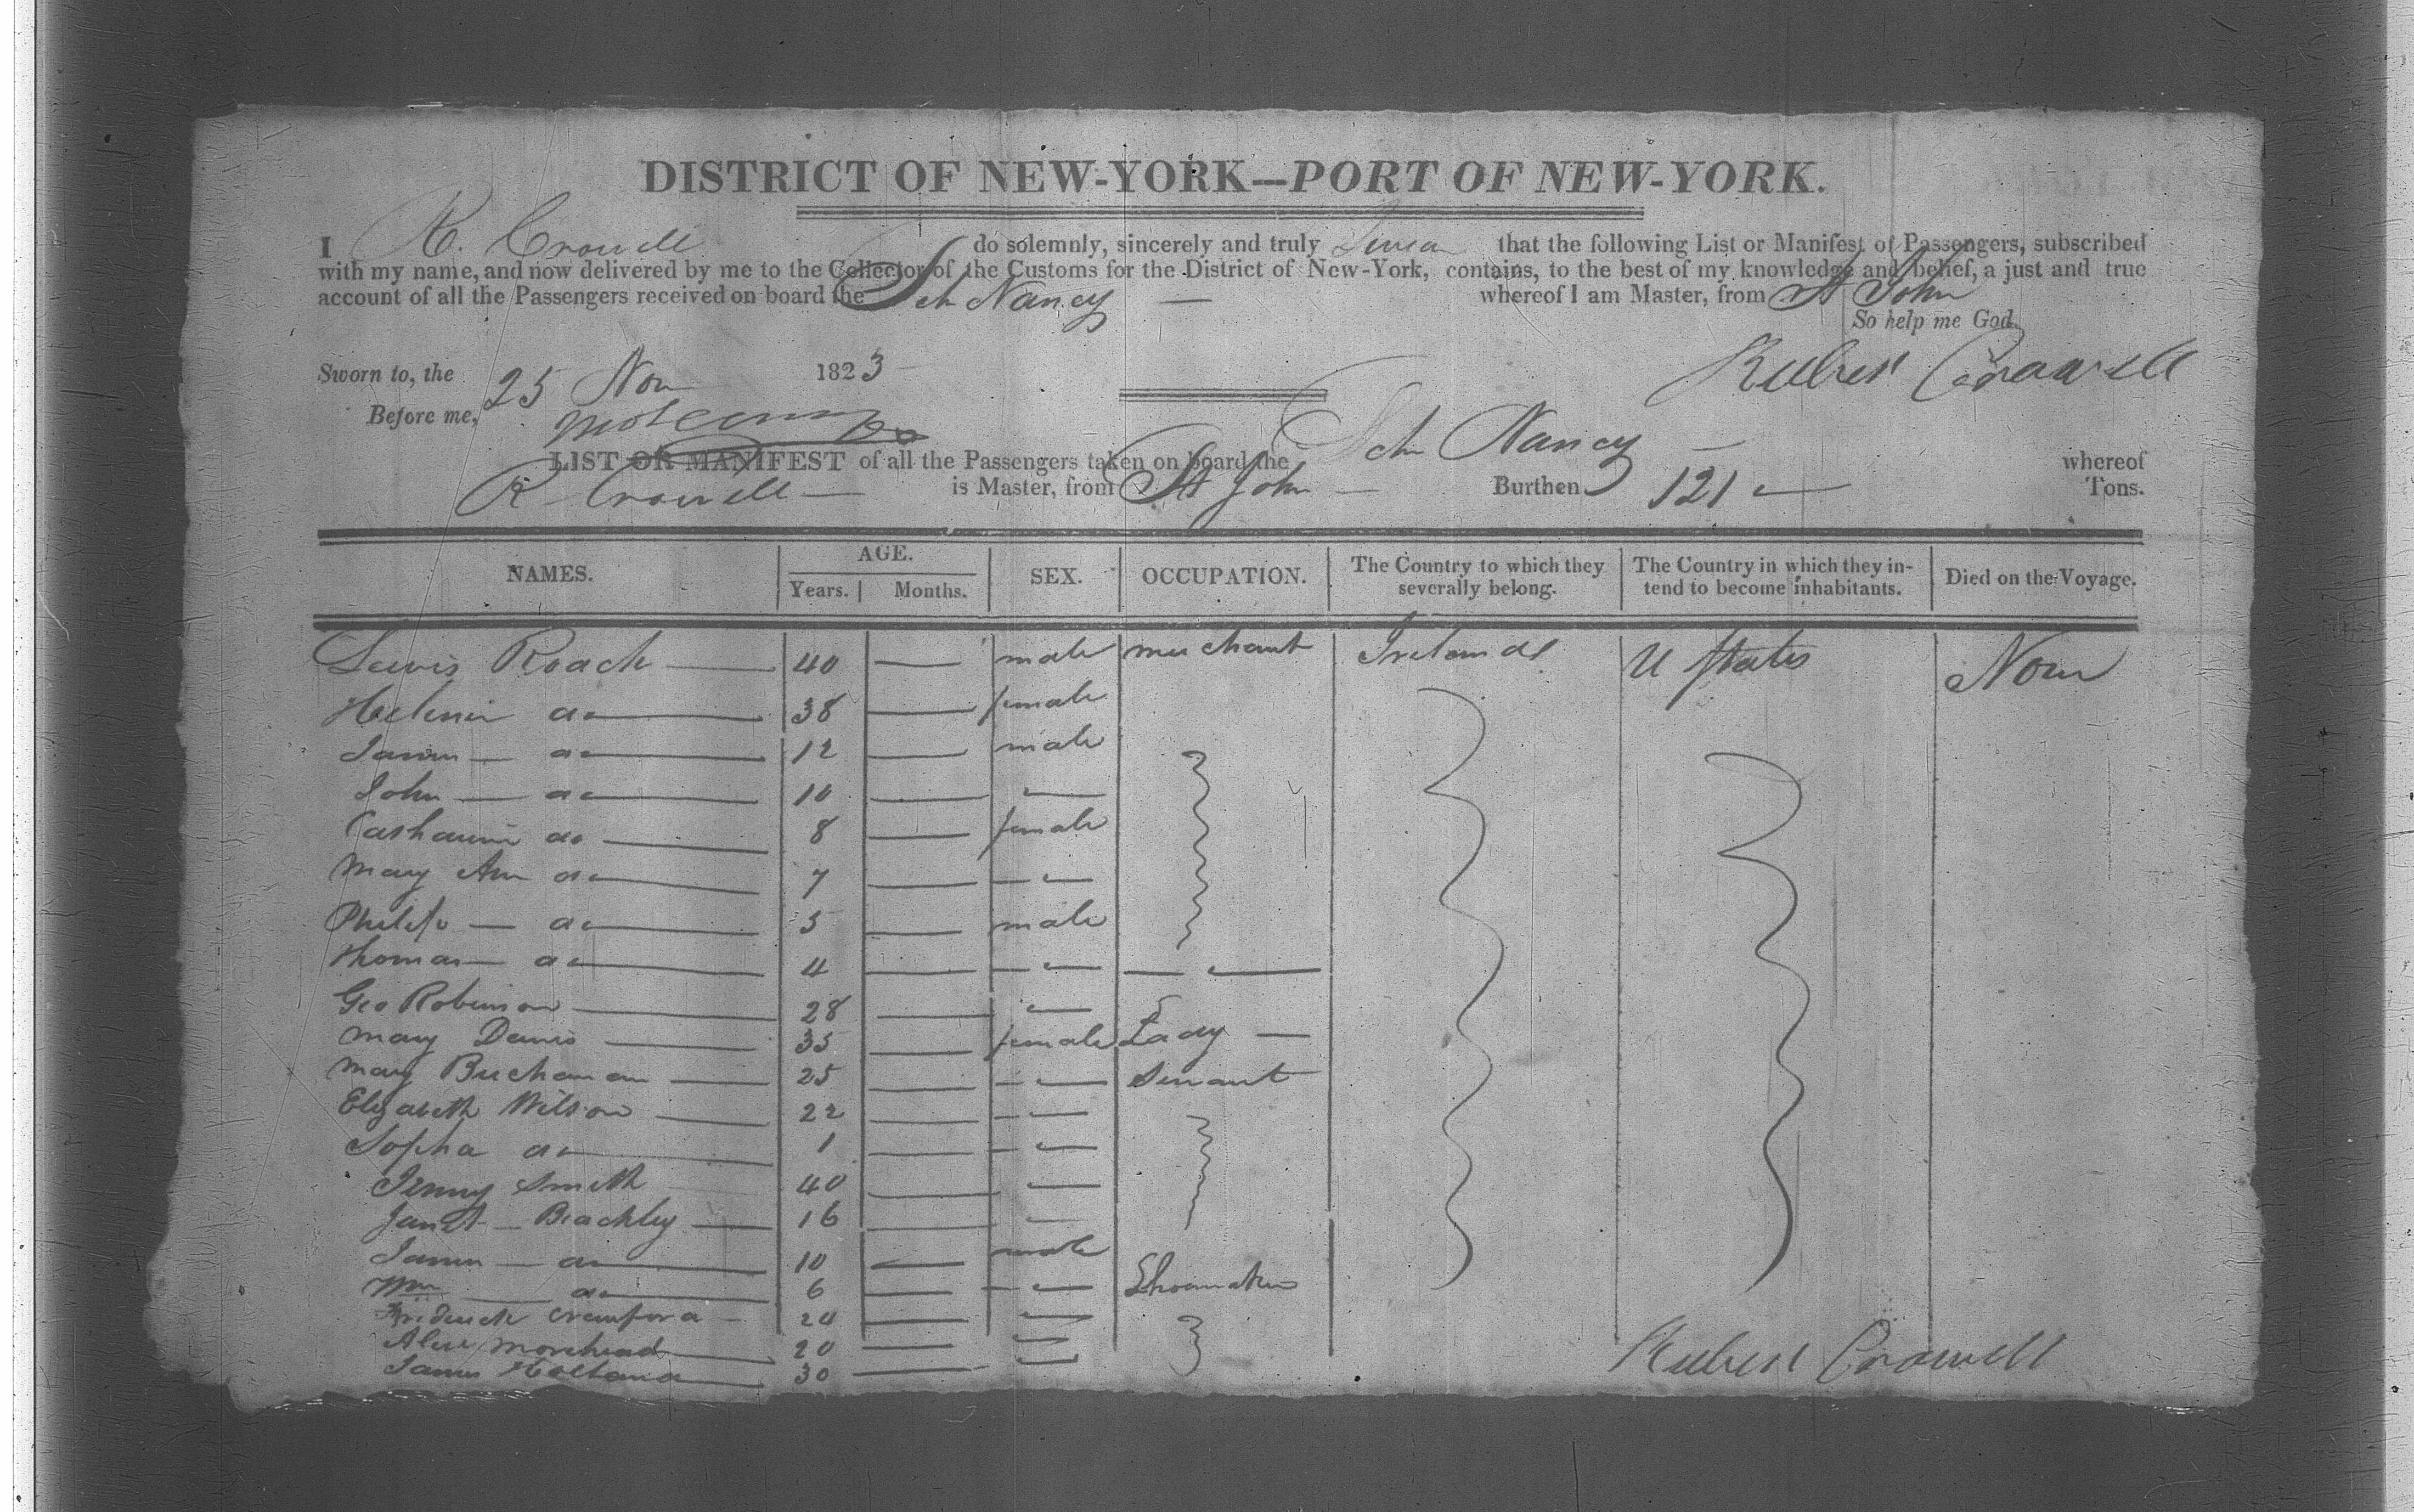 DISTRICT OF NEW-YORK—PORT OF NEW-YORK.
I R. Crowell do solemnly, sincerely and truly Swear that the following List or Manifest of Passengers, subscribed
with my name, and now delivered by me to the Collector of the Customs for the District of New-York, contains, to the best of my knowledge and belief, a just and true
account of all the Passengers received on board the Sch Nancy — whereof I am Master, from St John
So help me God.
Sworn to, the 25 Nov 1823
Reuben Crowell
Before me,
LIST OR MANIFEST of all the Passengers taken on board the Sch Nancy — whereof
R Crowell — is Master, from St John — Burthen 121 — Tons.
NAMES. AGE. Years. Months. SEX. OCCUPATION. The Country to which they severally belong. The Country in which they intend to become inhabitants. Died on the Voyage.
Lewis Roach 40 — male merchant Ireland U States None
do 38 — female
James do 12 — male
John do 10 —
Catharine do 8 — female
Mary Ann do 7 —
Philip do 5 — male
Thomas do 4 —
Geo Robinson 28 —
Mary Davis 35 — female Lady —
Mary Buchanan 25 — Servant
Elizabeth Wilson 22 —
Sopha do 1 —
Jenny Smith 40 —
Janet Beachley 16 —
James do 10 — male
Wm do 6 — Shoemaker
Frederick Crawford 20 —
Morehead 20 —
James Holland 30 —
Reuben Crowell